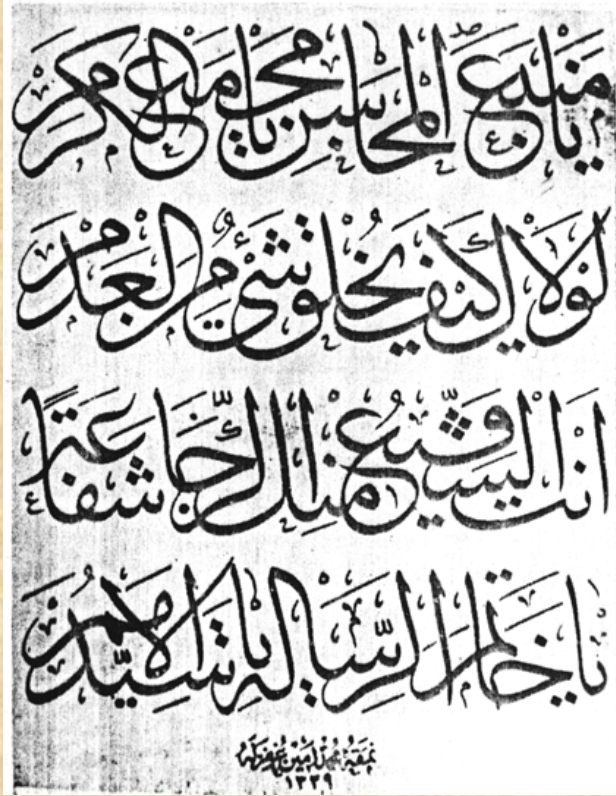 يا منبع المحاسن يا مجمع الكرم
لولاك كيف يخلق شيء من العدم
انت الشفيع الرجا شفاعة
يا خاتم الرسالة يا سيد الامم
نمقه محمد امين غفر له
١٣٣٩